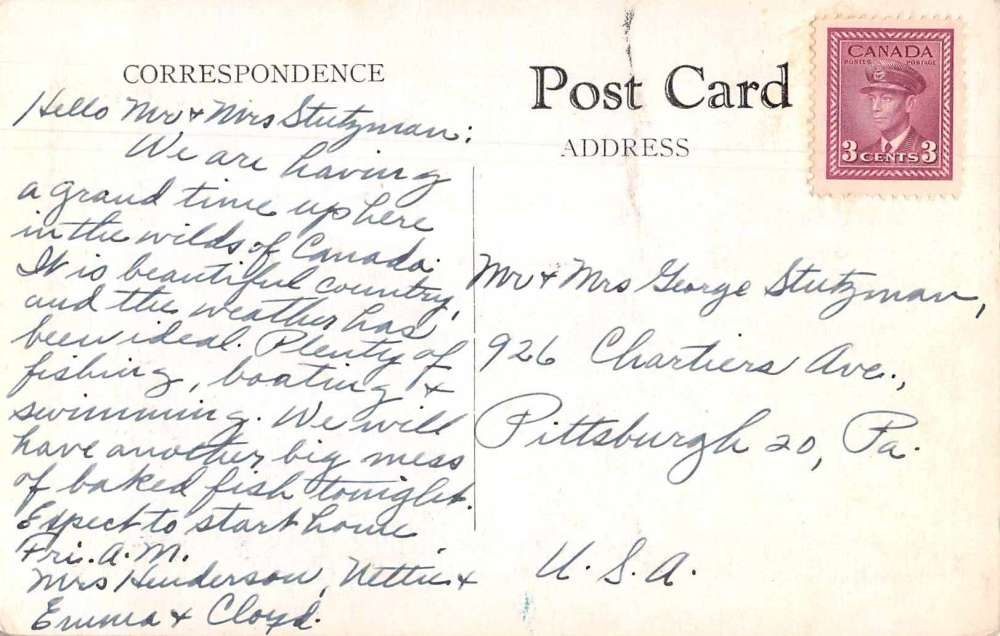 CORRESPONDENCE
Hello Mr & Mrs Stutzman:
We are having
a grand time up here
in the wilds of Canada.
It is beautiful country,
and the weather has
been ideal. Plenty of
fishing, boating &
swimming. We will
have another big mess
of baked fish tonight.
Expect to start home
Fri. A.M.
Mrs Henderson, Nettie &
Emma & Cloyd.
Post Card
ADDRESS
CANADA
POSTES POSTAGE
3 CENTS 3
Mr & Mrs George Stutzman,
926 Chartiers Ave.,
Pittsburgh 20, Pa.
U. S. A.